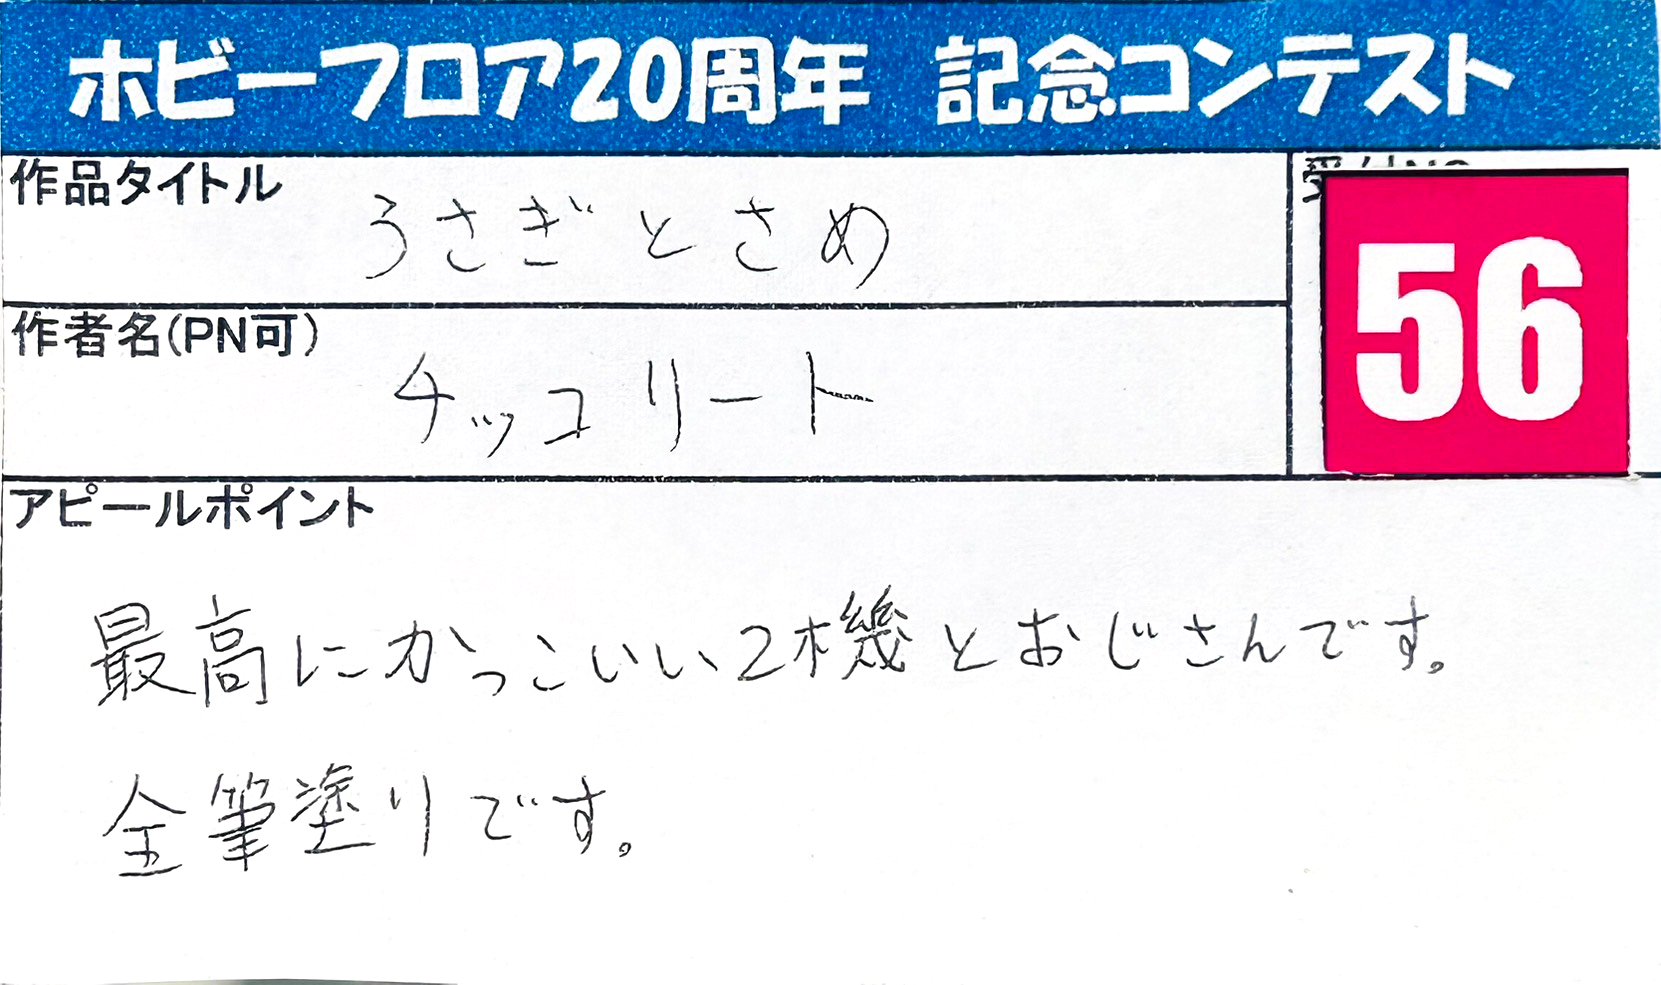 ホビーフロア20周年 記念コンテスト
作品タイトル
うさぎとさめ
56
作者名(PN可)
チッコリート
アピールポイント
最高にかっこいい2機とおじさんです。
全筆塗りです。